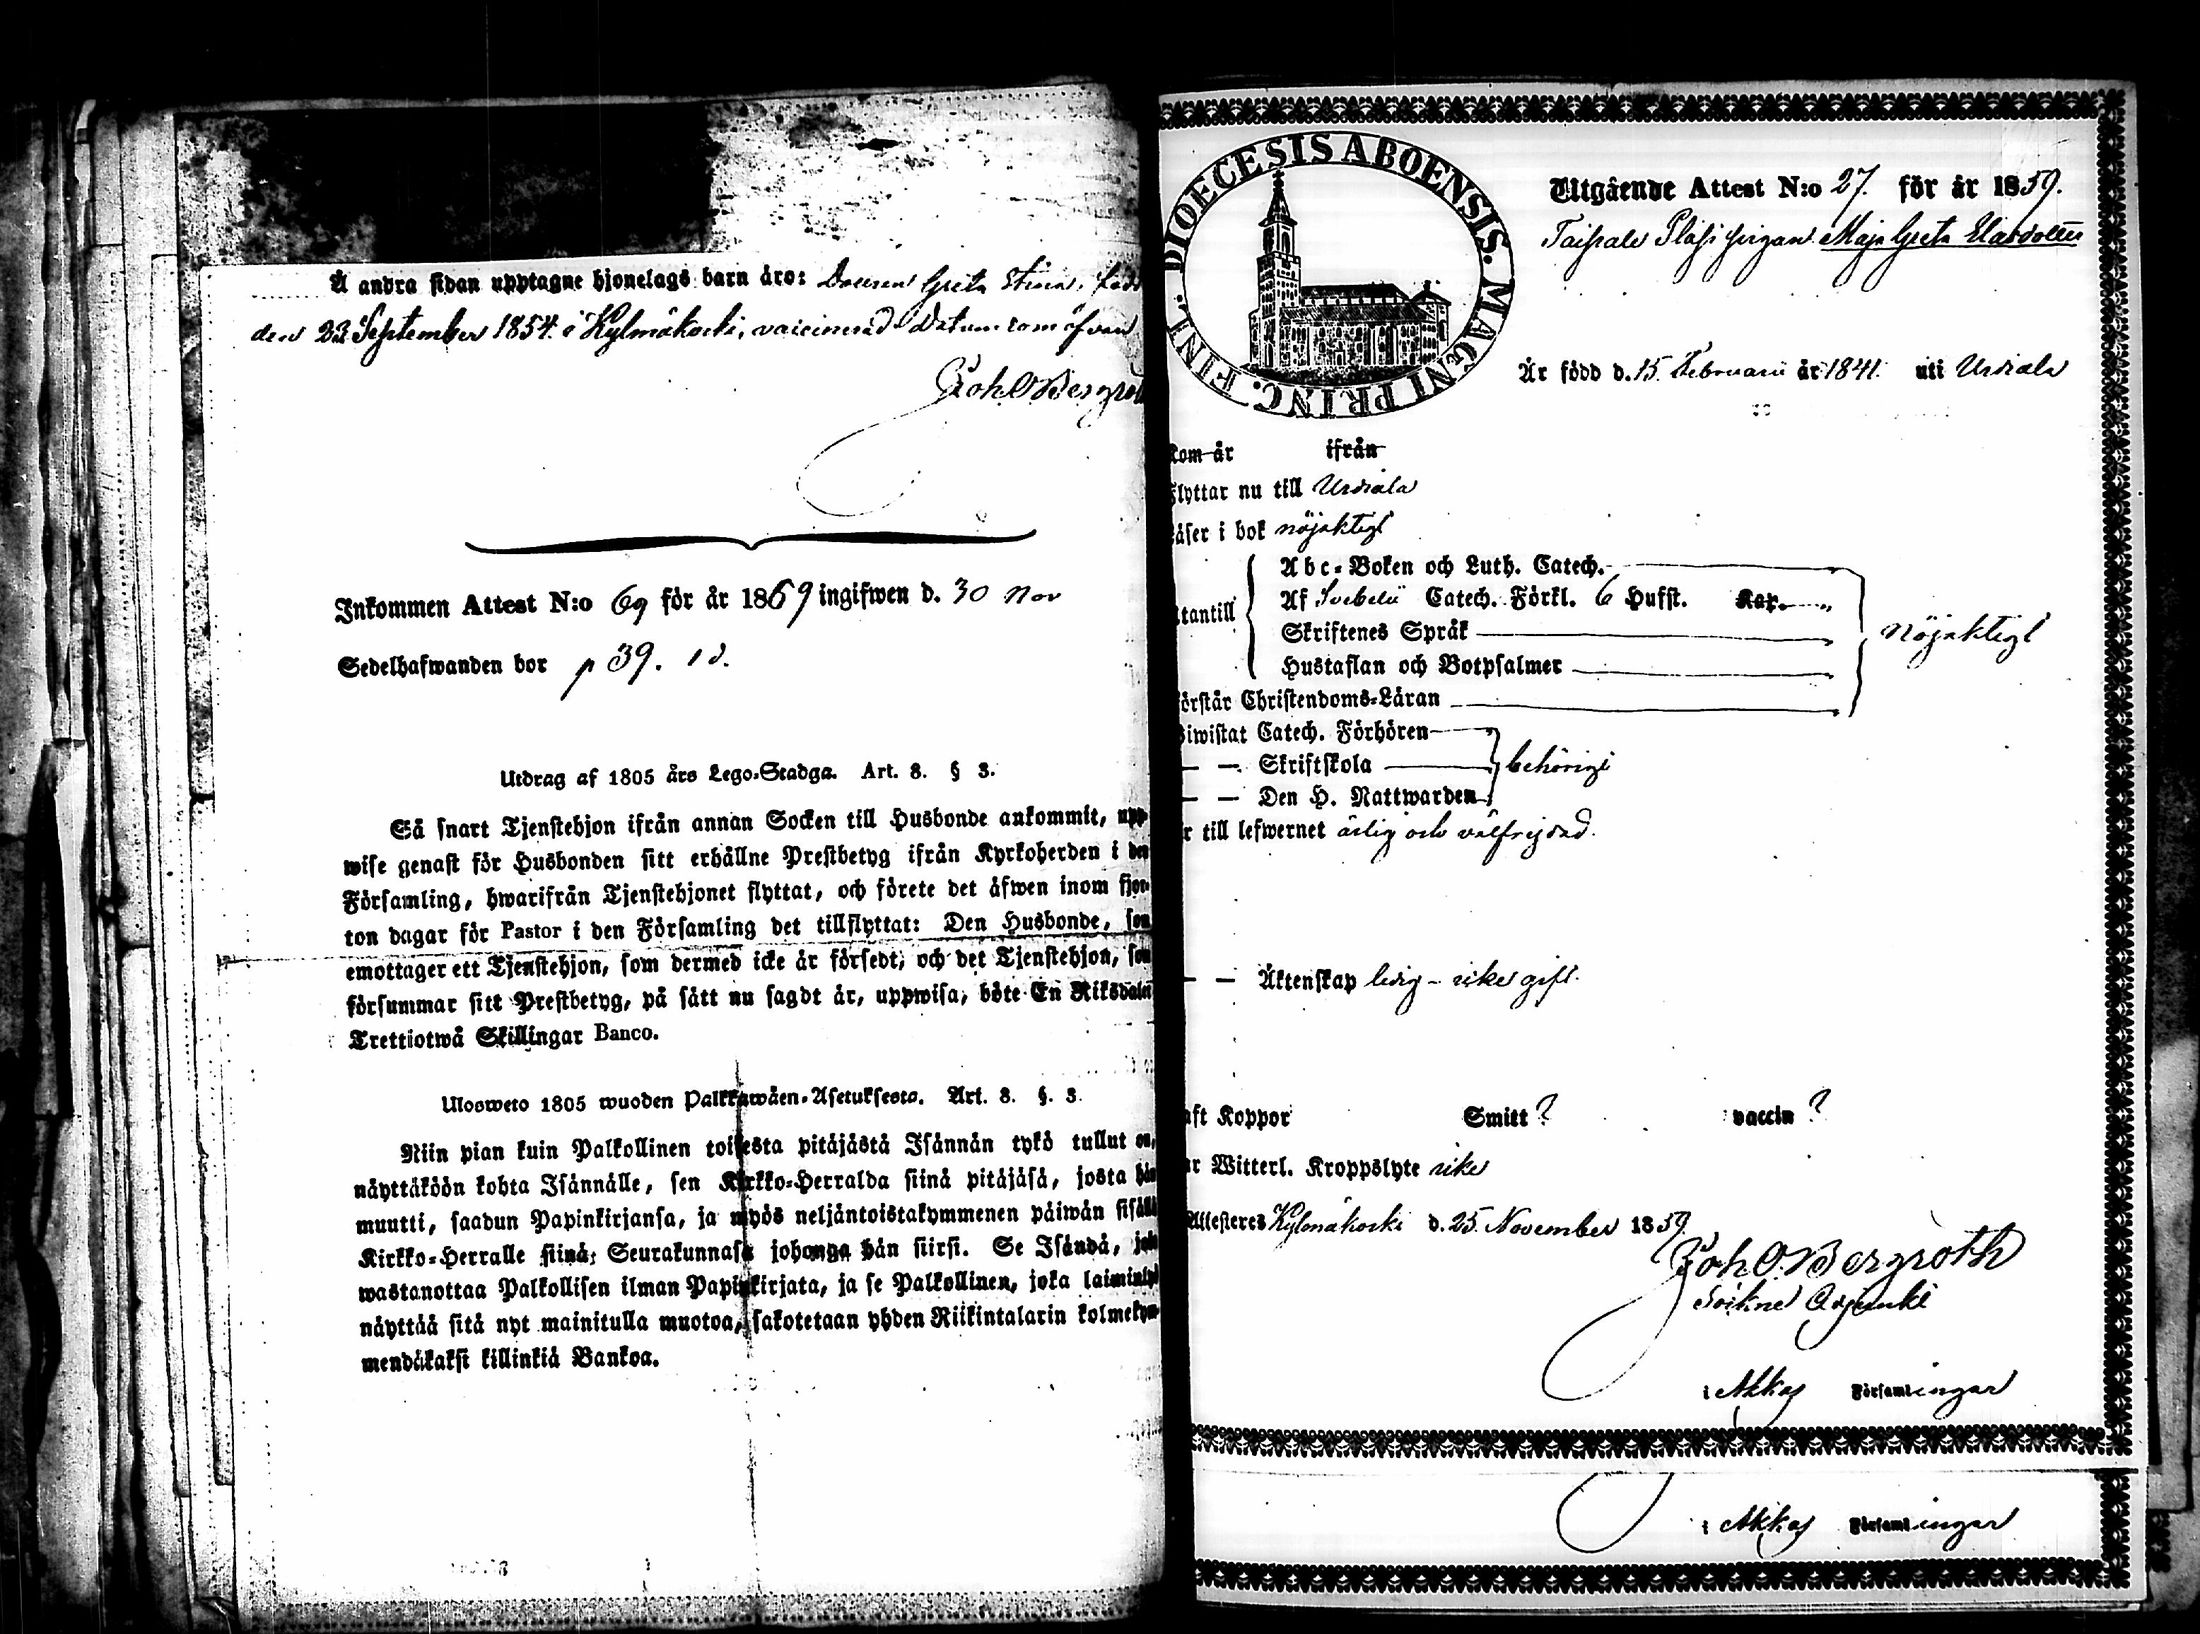 Å andra sidan upptagne hjonelags barn äro: Dottern Greta Stina, född
den 23 September 1854 i Kylmäkoski, vaccinerad. Datum som ofvan
Joh O Bergroth
Inkommen Attest N:o 69 för år 1869 ingifwen d. 30 Nov
Sedelhafwanden bor p 39. 1 d.
Utdrag af 1805 års Lego-Stadga. Art. 8. § 3.
Så snart Tjenstehjon ifrån annan Socken till Husbonde ankommit, upp-
wise genast för Husbonden sitt erhållne Prestbetyg ifrån Kyrkoherden i den
Församling, hwarifrån Tjenstehjonet flyttat, och förete det äfwen inom fjor-
ton dagar för Pastor i den Församling det tillflyttat: Den Husbonde, som
emottager ett Tjenstehjon, som dermed icke är försedt, och det Tjenstehjon, som
försummar sitt Prestbetyg, på sätt nu sagdt är, uppwisa, böte En Riksdaler
Trettiotwå Skillingar Banco.
Ulosweto 1805 wuoden Palkkawäen-Asetuksesta. Art. 8. §. 3.
Niin pian kuin Palkollinen toisesta pitäjästä Isännän tykö tullut on,
näyttäköön kohta Isännälle, sen Kirkko-Herralda siinä pitäjäsä, josta hän
muutti, saadun Papinkirjansa, ja myös neljäntoistakymmenen päiwän sisällä
Kirkko-Herralle siinä Seurakunnasa johonga hän siirsi. Se Isändä, joka
wastanottaa Palkollisen ilman Papinkirjata, ja se Palkollinen, joka laiminlyö
näyttää sitä nyt mainitulla muotoa, sakotetaan yhden Riikintalarin kolmekym-
mendäkaksi killinkiä Bankoa.
DIOECESIS ABOENSIS. MAGNI PRINC. FINL.
Utgående Attest N:o 27. för år 1859.
Taipale Plåss pigan Maja Greta Eliasdotter
Är född d. 15. Februarii år 1841. uti Urdiala
Kom år ifrån
Flyttar nu till Urdiala
Läser i bok nöjaktigt
Utantill
Abc-Boken och Luth. Catech.
Af Svebelii Catech. Förkl. 6 Hufst. Kap.
Skriftenes Språk
Hustaflan och Botpsalmer
nöjaktigt
Förstår Christendoms-Läran
Biwistat Catech. Förhören
— — Skriftskola
— — Den H. Nattwarden
behörigt
Är till lefwernet ärlig och välfrejdad.
— — Äktenskap ledig – icke gift.
Haft Koppor Smitt ? vaccin ?
Har Witterl. Kroppslyte icke
Attesteres Kylmäkoski d. 25. November 1859
Joh O. Bergroth
Sockne Adjunkt
i Akkas Församlingar
i Akkas Församlingar